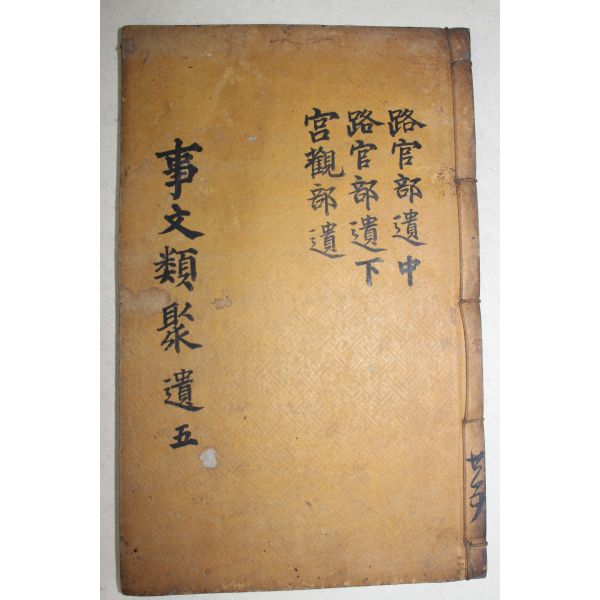 路官部遺中
路官部遺下
宮觀部遺
事文類聚遺五